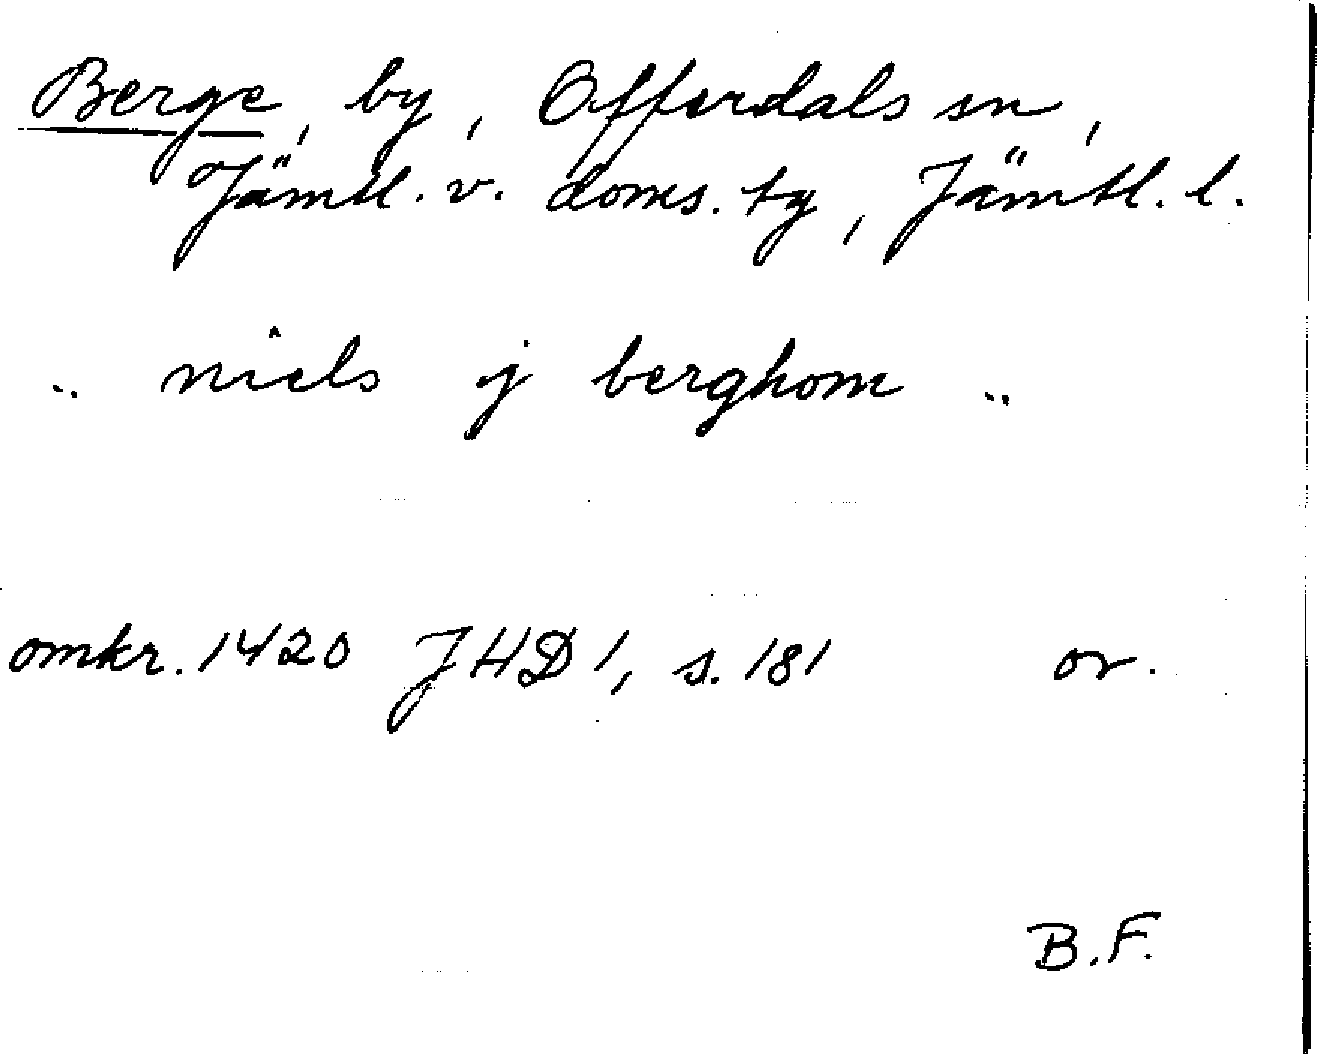 Berge, by, Offerdals sn,
Jämtl. v. doms. tg, Jämtl. l.
.. niels j berghom ..
omkr. 1420 JHD 1, s. 181 or.
B.F.